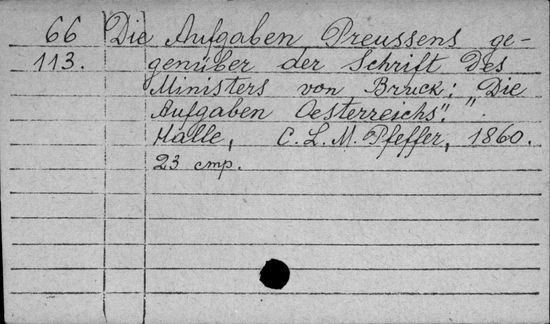 66 Die Aufgaben Preussens ge-
113. genüber der Schrift des
Ministers von Bruck: „Die
Aufgaben Oesterreichs".
Halle, C. L. M. Pfeffer, 1860.
23 стр.